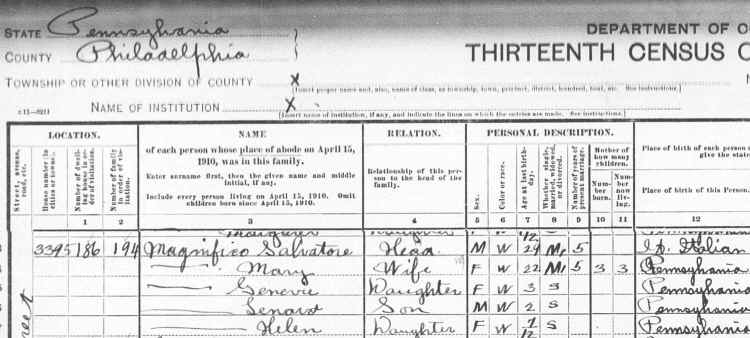 STATE Pennsylvania
DEPARTMENT OF
COUNTY Philadelphia
THIRTEENTH CENSUS
TOWNSHIP OR OTHER DIVISION OF COUNTY X
[Insert proper name and, also, name of class, as township, town, precinct, district, hundred, beat, etc. See instructions.]
NAME OF INSTITUTION X
[Insert name of institution, if any, and indicate the lines on which the entries are made. See instructions.]
LOCATION. NAME RELATION. PERSONAL DESCRIPTION.
of each person whose place of abode on April 15, 1910, was in this family.
Enter surname first, then the given name and middle initial, if any.
Include every person living on April 15, 1910. Omit children born since April 15, 1910.
Relationship of this person to the head of the family.
Street, avenue, road, etc.
House number in cities or towns.
Number of dwelling house in order of visitation.
Number of family in order of visitation.
Sex.
Color or race.
Age at last birthday.
Whether single, married, widowed, or divorced.
Number of years of present marriage.
Mother of how many children.
Number born.
Number now living.
Place of birth of each person
give the state
Place of birth of this Person.
1 2 3 4 5 6 7 8 9 10 11 12
3395 186 194 Magnifico Salvatore Head M W 24 M1 5 It. Italian
Mary Wife F W 22 M1 5 3 3 Pennsylvania
Genevie Daughter F W 3 S Pennsylvania
Son M W 2 S Pennsylvania
Helen Daughter F W 7/12 S Pennsylvania